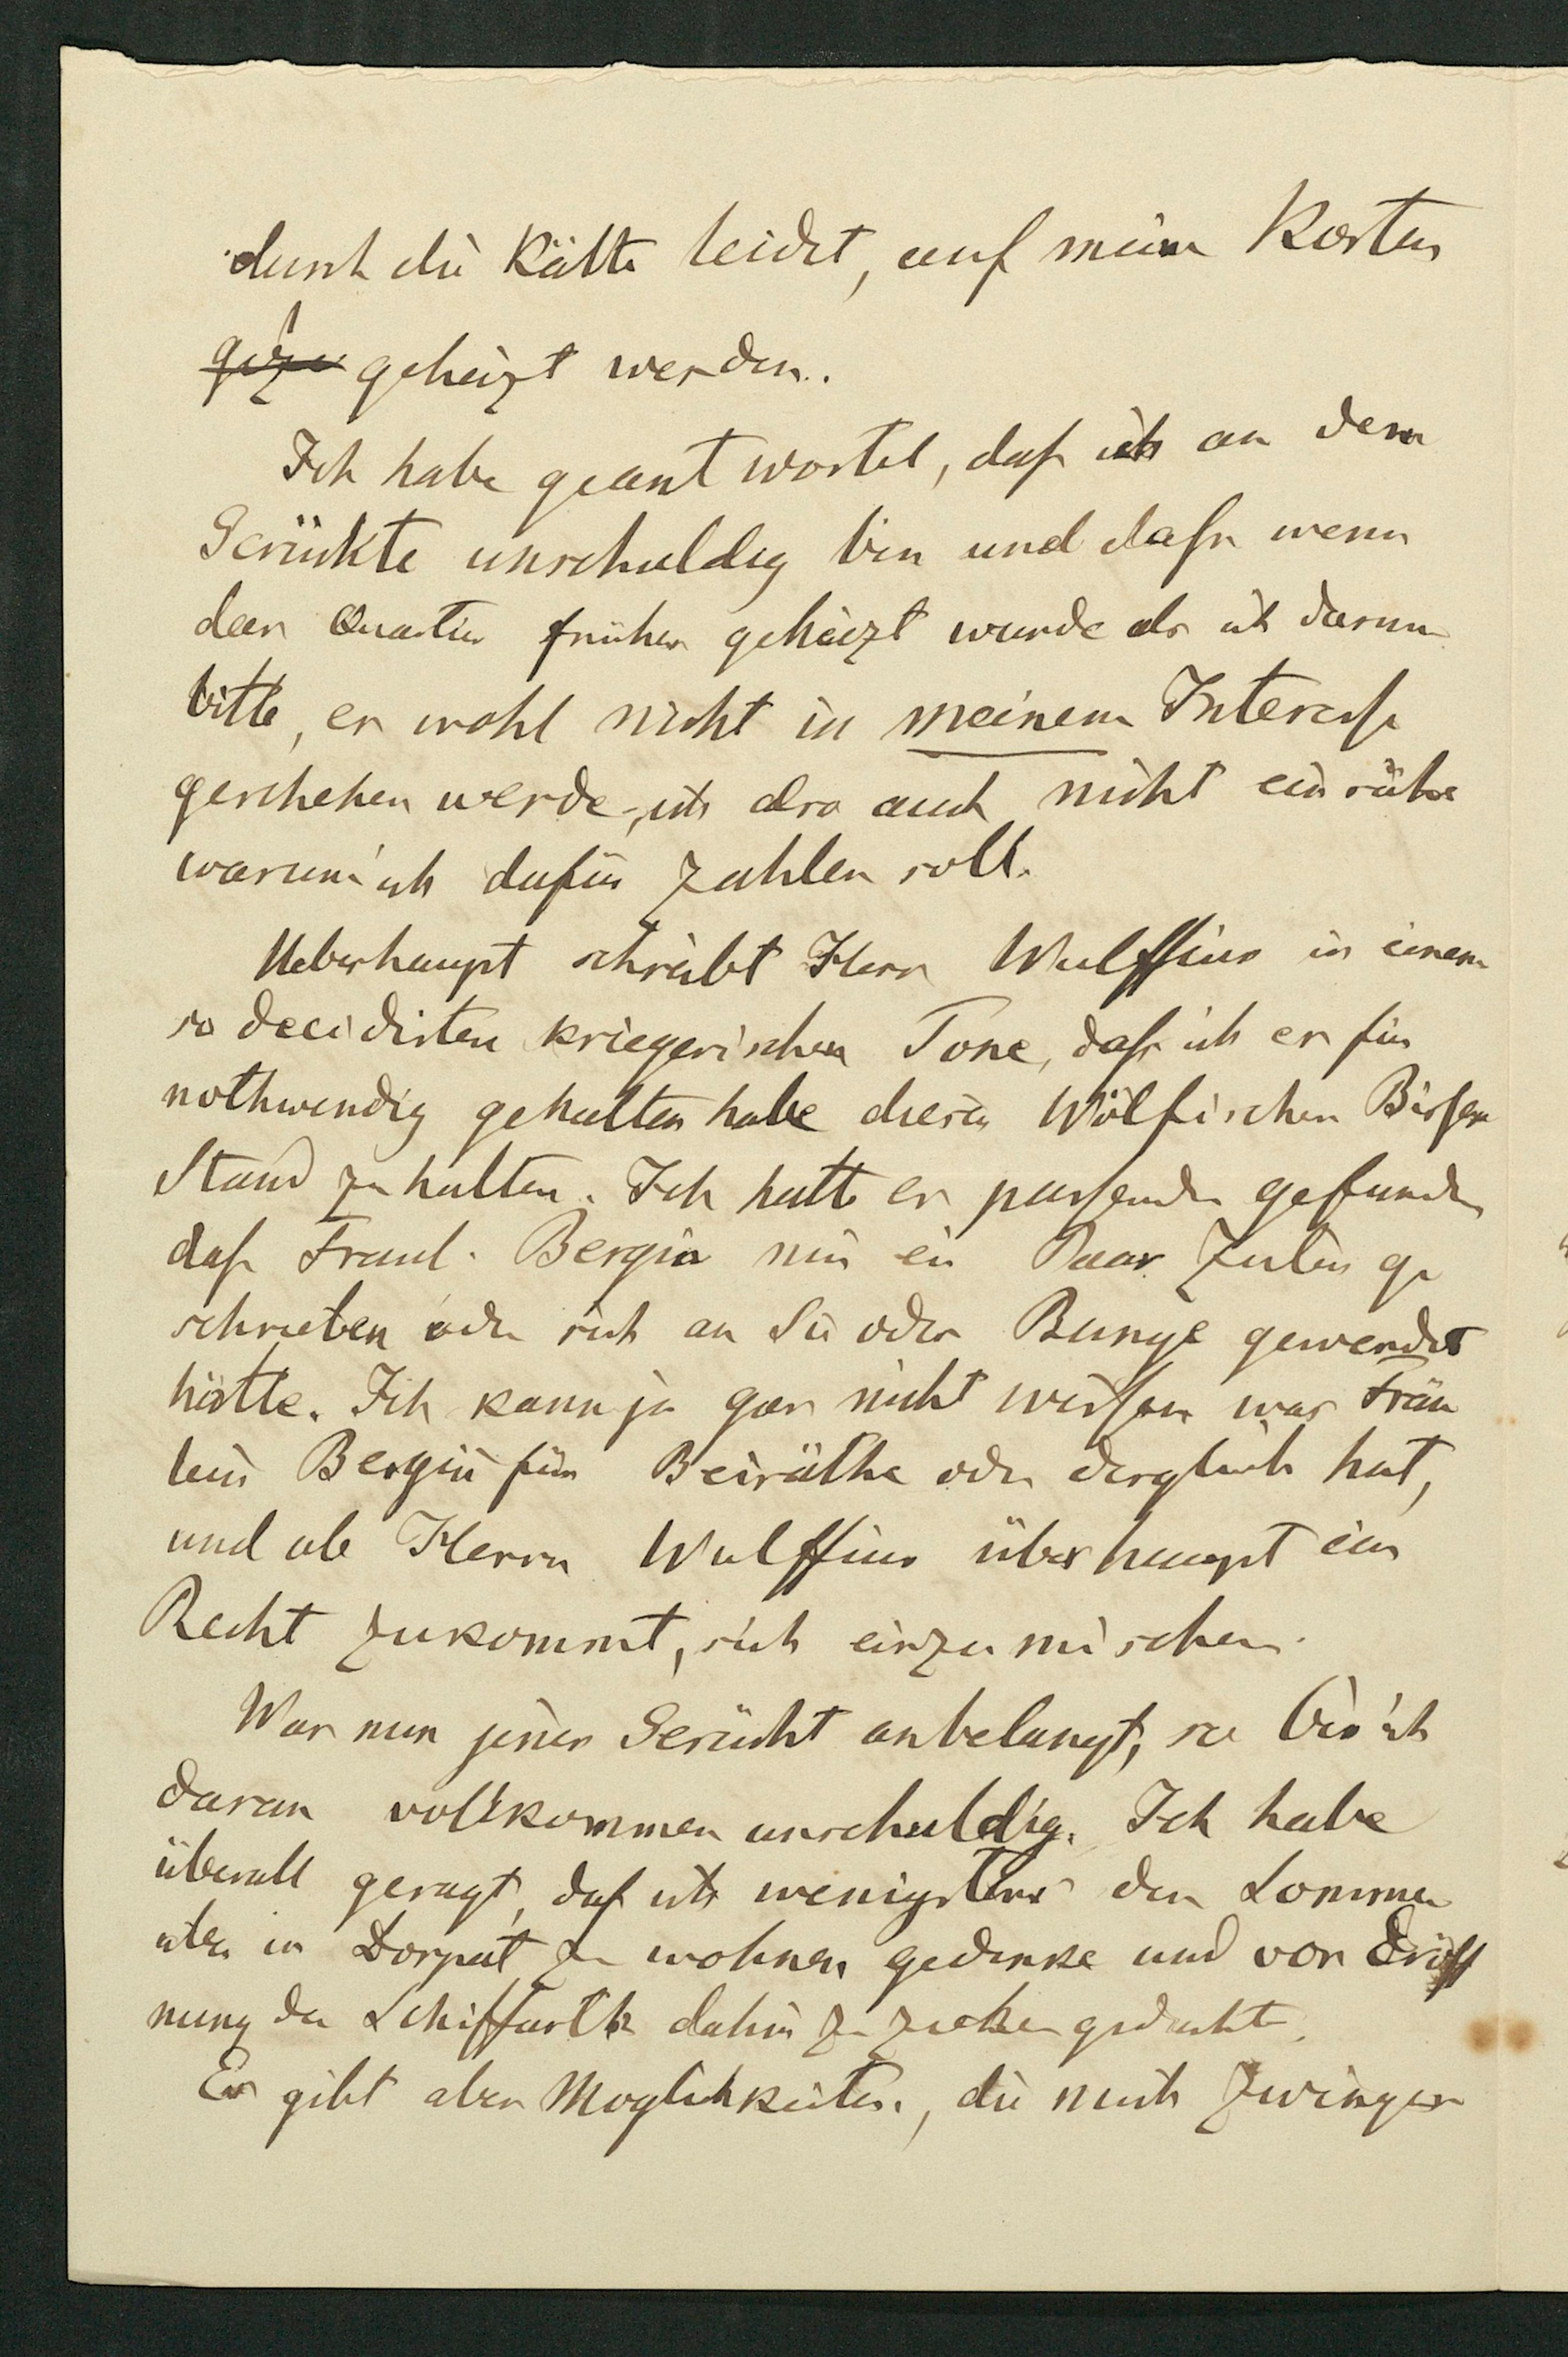 durch die Kälte leidet, auf meine Kosten
geze geheizt werden.
Ich habe geantwortet, daß ich an dem
Gerüchte unschuldig bin und daß wenn
das Quartier früher geheizt wurde als ich darum
bitte, es wohl nicht in meinem Interesse
geschehen werde, ich also auch nicht einsähe
warum ich dafür zahlen soll.
Ueberhaupt schreibt Herr Wulffius in einem
so decidirten kriegerischen Tone, daß ich es für
nothwendig gehalten habe diesen Wölfischen Bissen
Stand zu halten. Ich hätte es passender gefunden
daß Fraul. Bergin mir ein Paar Zeilen ge
schrieben oder sich an Sie oder Bunge gewendet
hätte. Ich kann ja gar nicht wissen was Fräu
lein Bergin für Beiräthe oder dergleich hat,
und ob Herrn Wulffius überhaupt ein
Recht zukommt, sich einzumischen.
Was nun jenes Gerücht anbelangt, so bin ich
daran vollkommen unschuldig. Ich habe
überall gesagt, daß ich wenigstens den Sommer
über in Dorpat zu wohnen gedenke und vor Eröff
nung der Schiffarth dahin zu ziehen gedächte.
Es gibt aber Moglichkeiten, die mich zwingen